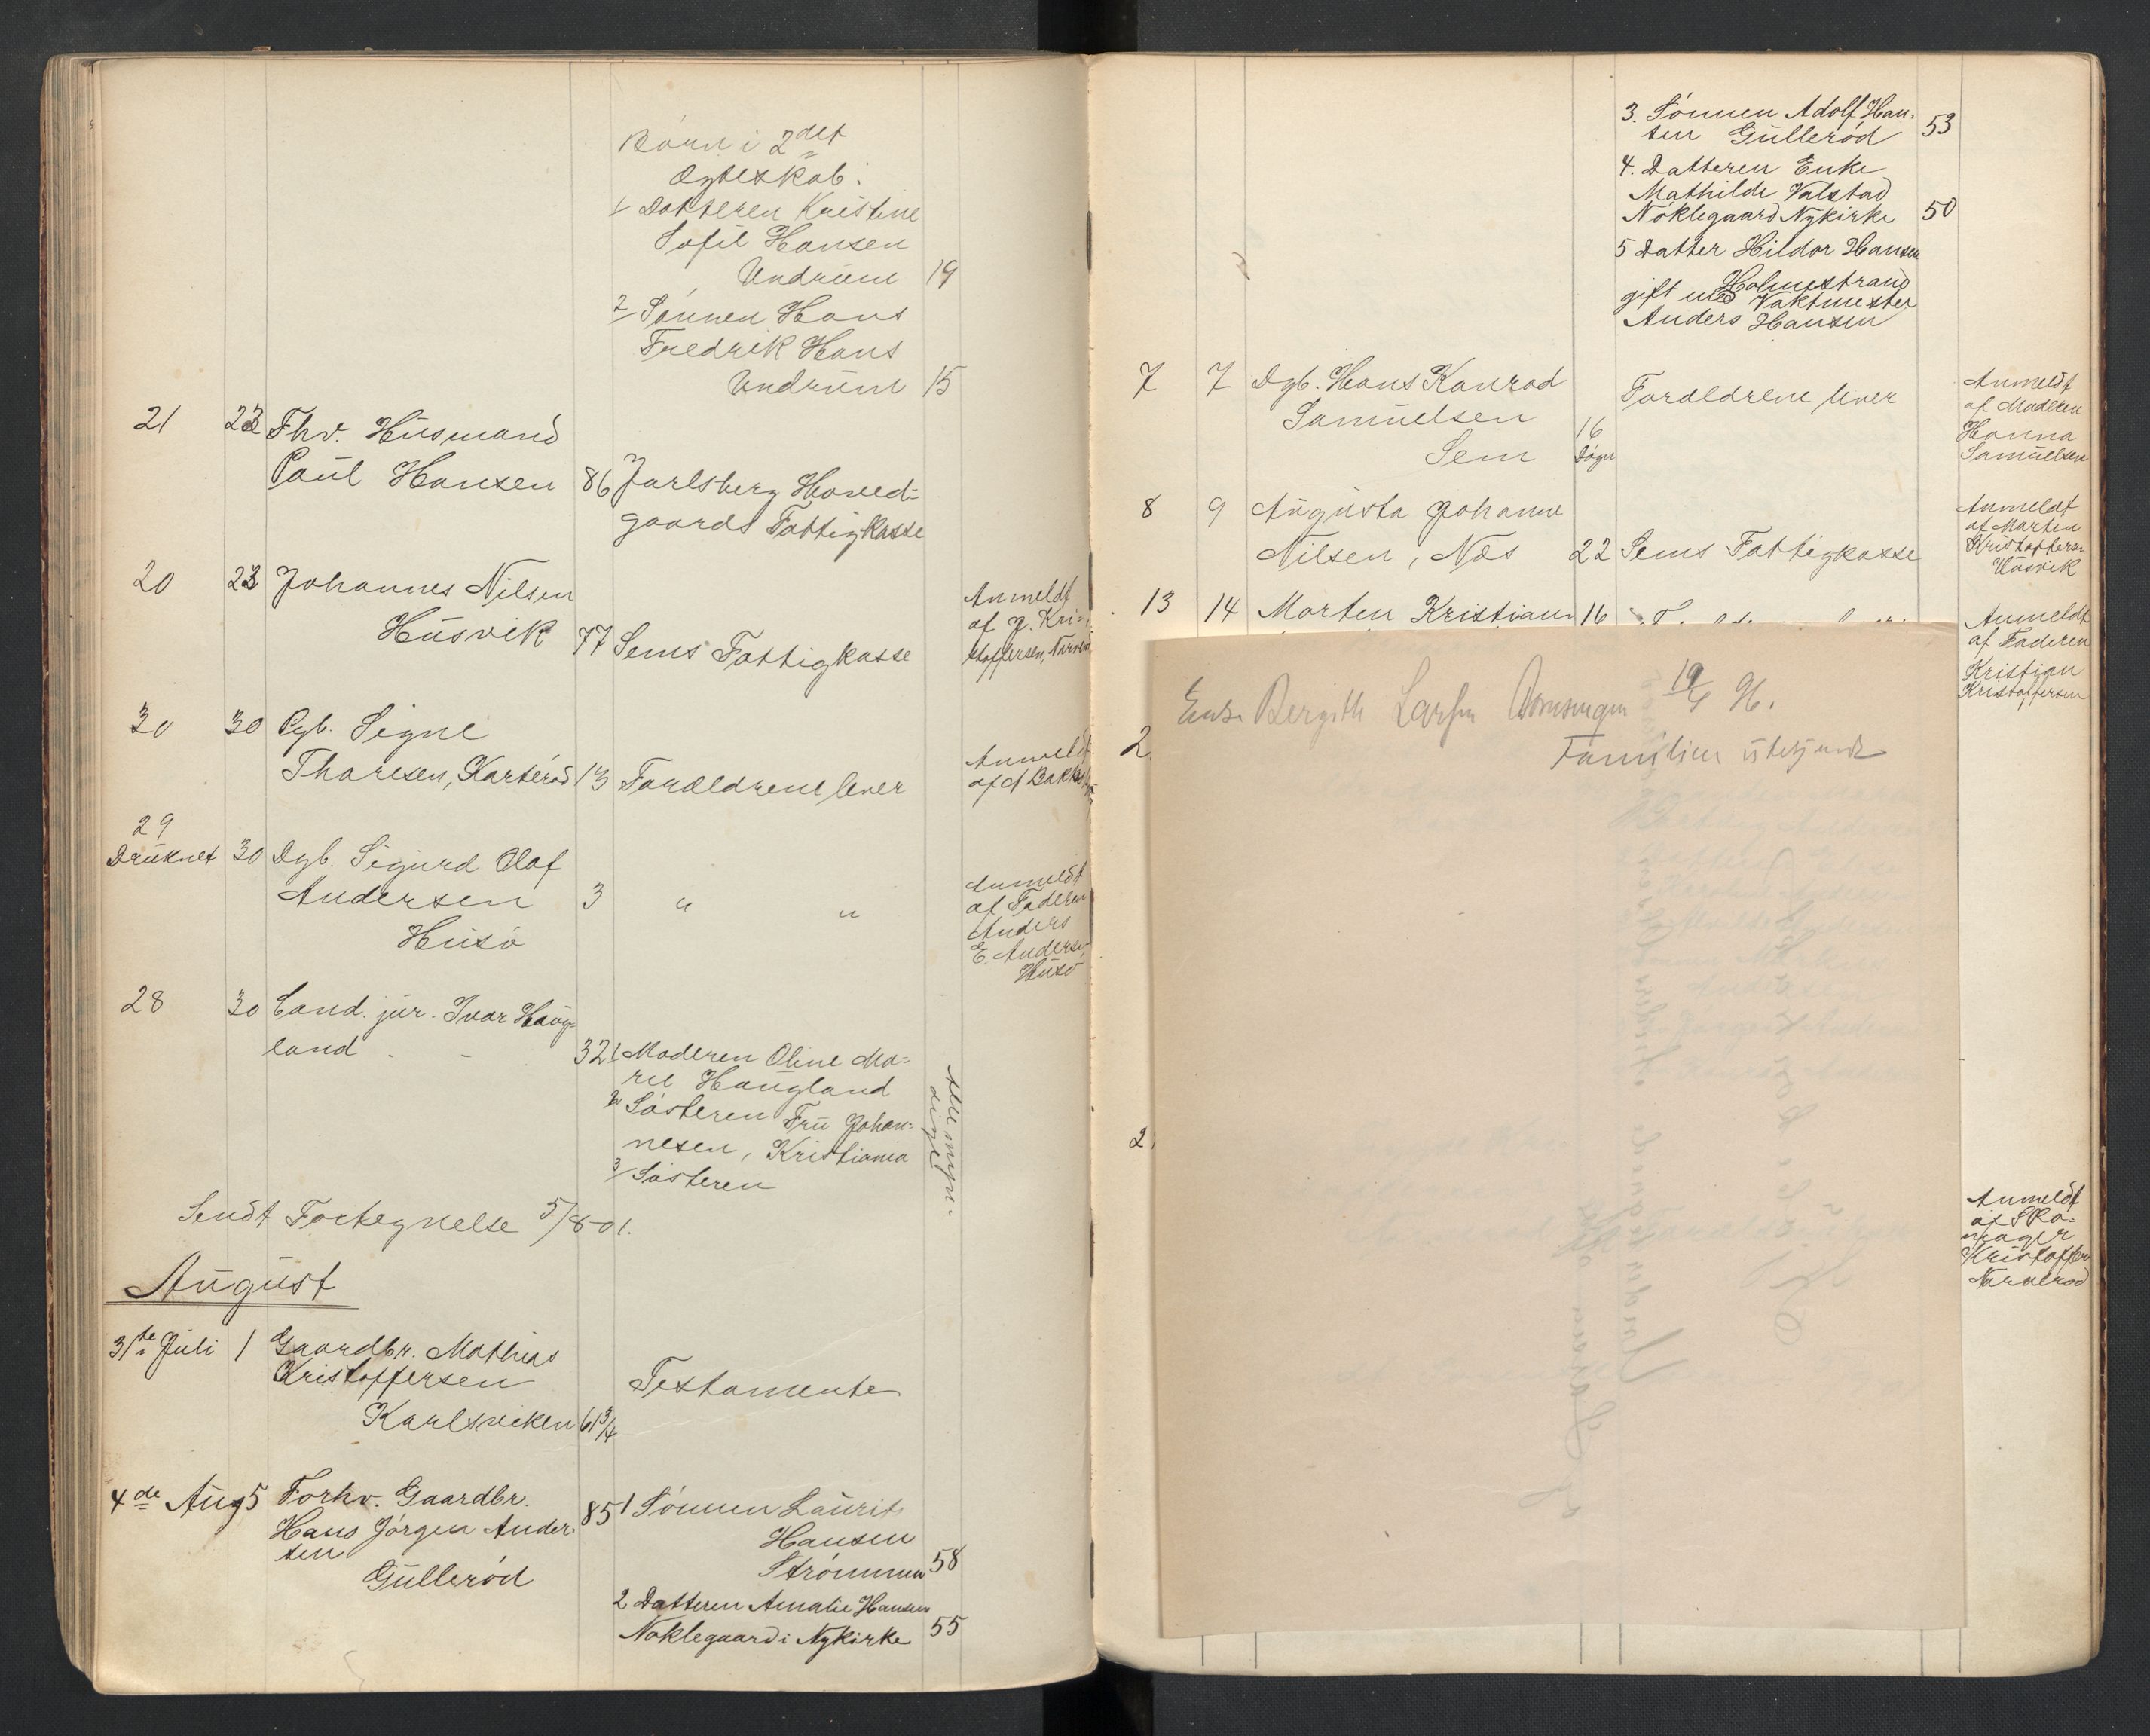 Børn i 2det
Ægteskab.
1/ Datteren Kristine
Sofie Hansen
Undrum 19
2/ Sønnen Hans
Fredrik Hans
Undrum 15
21 22 Fhv. Husmand
Paul Hansen 86 Jarlsberg Hoved-
gaards Fattigkasse
20 23 Johannes Nilsen
Husvik 77 Sems Fattigkasse
Anmeldt
af J. Kri-
stoffersen,
30 30 Pgb. Signe
Thoresen, 13 Forældrene lever
Anmeldt
af
29
Druknet 30 Dgb. Sigurd Olaf
Andersen 3 " "
Husø
Anmeldt
af Faderen
Anders
E. Anderse,
Husø
28 30 Cand. jur. Ivar Haug-
land 32 1 Moderen Oline Ma-
rie Haugland
2 Søsteren Fru Johan-
nesen, Kristiania
3/ Søsteren
Alle myn-
dige
Sendt Fortegnelse 5/8 01.
August
31te Juli 1 Gaardbr. Mathias
Kristoffersen Testamente
Karlsviken 61 3/4
4de Aug 5 Forhv. Gaardbr.
Hans Jørgen Ander-
sen
Gullerød
85 1 Sønnen Laurits
Hansen
Strømmen 58
2 Datteren Amalie Hansen
Nøklegaard i Nykirke 55
3. Sønnen Adolf Han-
sen Gullerød 53
4. Datteren Enke
Mathilde Valstad
Nøklegaard Nykirke 50
5 Datter Hildor Hansen
Holmestrand
gift med Vaktmester
Anders Hansen
7 7 Dgb. Hans Konrad
Samuelsen 16
Sem Døgn
Forældrene lever
Anmeldt
af Moderen
Hanna
Samuelsen
8 9 Augusta Johanne
Nilsen, Næs 22 Sems Fattigkasse
Anmeldt
af Marten
Kristoffersen
Husvik
13 14 Morten Kristian 16
Anmeldt
af Faderen
Kristian
Kristoffersen
Enke Bergith Larsen 19/6 96.
Familien ubekjendt
2
2
Anmeldt
af Sko-
mager
Kristoffer